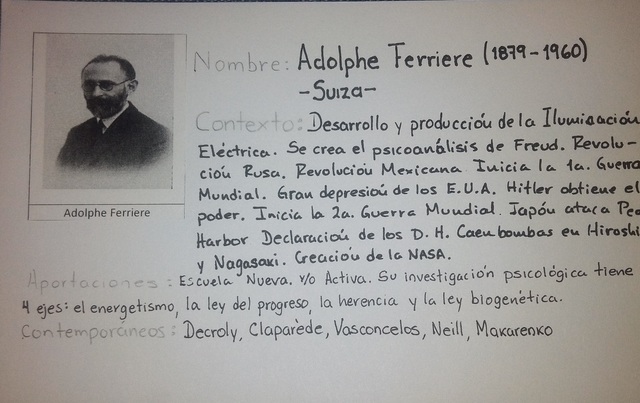 Nombre: Adolphe Ferriere (1879-1960)
-Suiza-
Contexto: Desarrollo y producción de la Iluminación
Eléctrica. Se crea el psicoanálisis de Freud. Revolu-
ción Rusa. Revolución Mexicana Inicia la 1a. Guerra
Mundial. Gran depresión de los E.U.A. Hitler obtiene el
poder. Inicia la 2a. Guerra Mundial. Japón ataca Pea
Harbor Declaración de los D. H. Caen bombas en Hiroshi
y Nagasaki. Creación de la NASA.
Adolphe Ferriere
Aportaciones: Escuela Nueva. Y/o Activa. Su investigación psicológica tiene
4 ejes: el energetismo, la ley del progreso, la herencia y la ley biogenética.
Contemporáneos: Decroly, Claparède, Vasconcelos, Neill, Makarenko